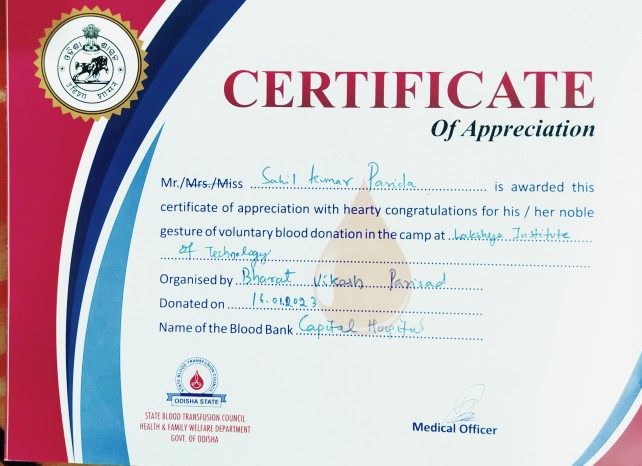 ଓଡ଼ିଶା ସରକାର
CERTIFICATE
Of Appreciation
Mr./Mrs./Miss Sahil Kumar Parida is awarded this
certificate of appreciation with hearty congratulations for his / her noble
gesture of voluntary blood donation in the camp at Lakshya Institute
Of Technology
Organised by Bharat Vikash Parisad
Donated on 16.01.2023
Name of the Blood Bank Capital Hospital
STATE BLOOD TRANSFUSION COUNCIL
ODISHA STATE
STATE BLOOD TRANSFUSION COUNCIL
HEALTH & FAMILY WELFARE DEPARTMENT
GOVT. OF ODISHA
Medical Officer